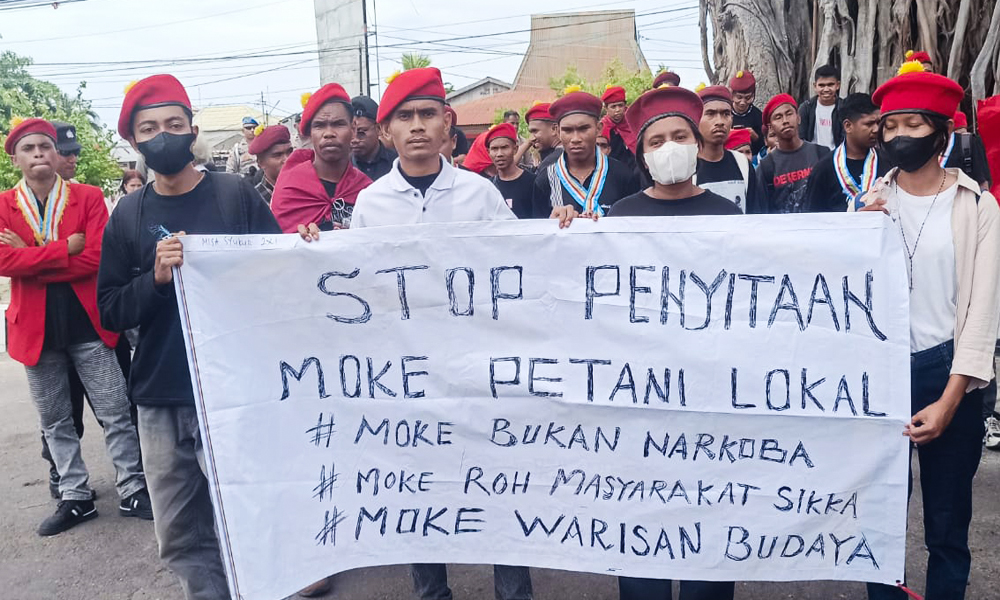 STOP PENYITAAN
MOKE PETANI LOKAL
# MOKE BUKAN NARKOBA
# MOKE ROH MASYARAKAT SIKKA
# MOKE WARISAN BUDAYA
DETERM